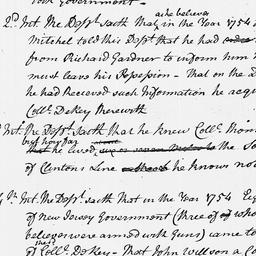 Government
as he believes
2d. Int. The Depst. Saith that in the Year 1754
Mitchel told this Depst. that he had
from Richard Gardner to inform him
never leave his Possession - That on the
he had Received such Information he acq
Coll. DeKey therewith
Int. The Depst. Saith that he knew Coll. Thom
but how far
that he lived, six or seven miles to the So
of Clintons Line he knows no
Int. The Depst. Saith that in the Year 1754
of new Jersey Government (three of wh
believes were armed with Guns) came to
of Coll. DeKeys - That John Willson a Co